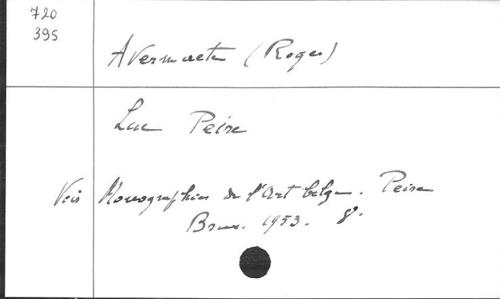 720
395
Avermaete (Roger)
Luc Peire
Voir Monographies de l'Art belge. Peire
Brux. 1953. 8°.